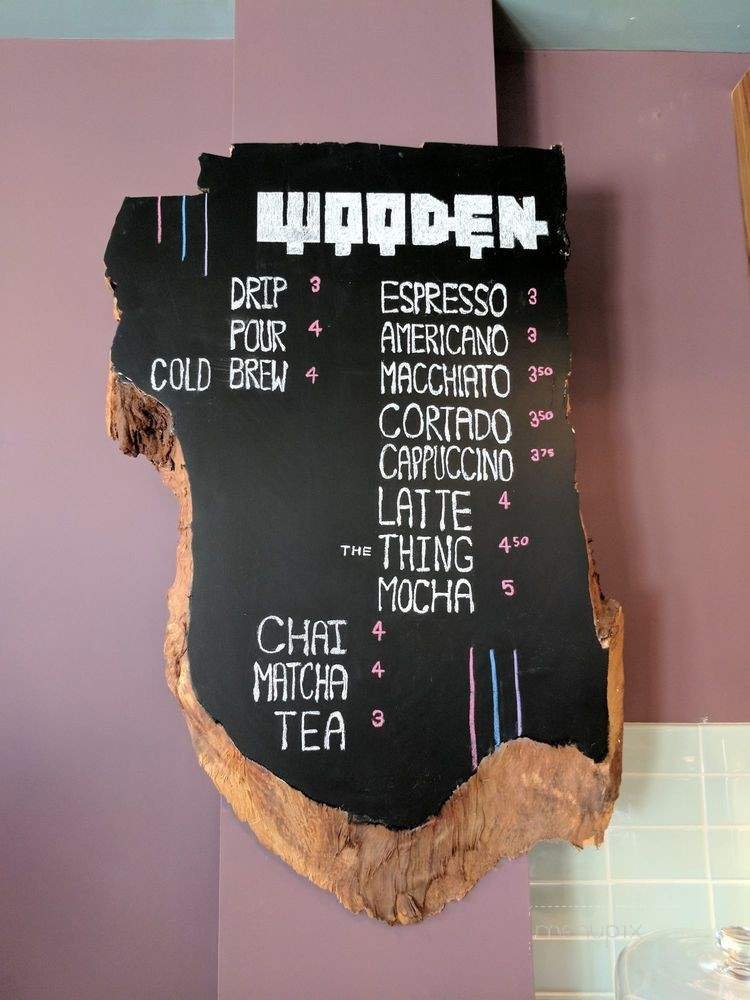 WOODEN
DRIP 3
POUR 4
COLD BREW 4
ESPRESSO 3
AMERICANO 3
MACCHIATO 350
CORTADO 350
CAPPUCCINO 375
LATTE 4
THE THING 450
MOCHA 5
CHAI 4
MATCHA 4
TEA 3
menupix